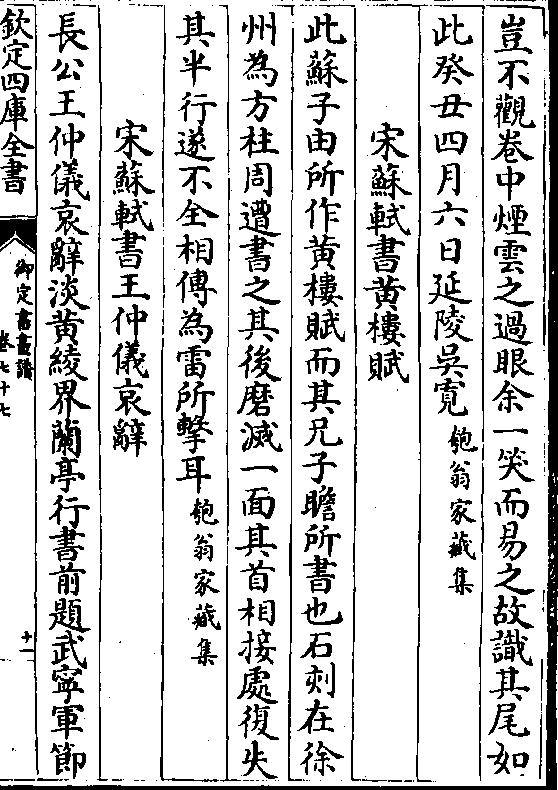 豈不觀卷中煙雲之過眼余一笑而易之故識其尾如
此癸丑四月六日延陵吳寛匏翁家藏集
宋蘇軾書黄樓賦
此蘇子由所作黄樓賦而其兄子瞻所書也石刻在徐
州為方柱周遭書之其後磨滅一面其首相接處復失
其半行遂不全相傳為雷所擊耳匏翁家藏集
宋蘇軾書王仲儀哀辭
長公王仲儀哀辭淡黄綾界蘭亭行書前題武寧軍節
欽定四庫全書
御定書畫譜
卷七十七
十一